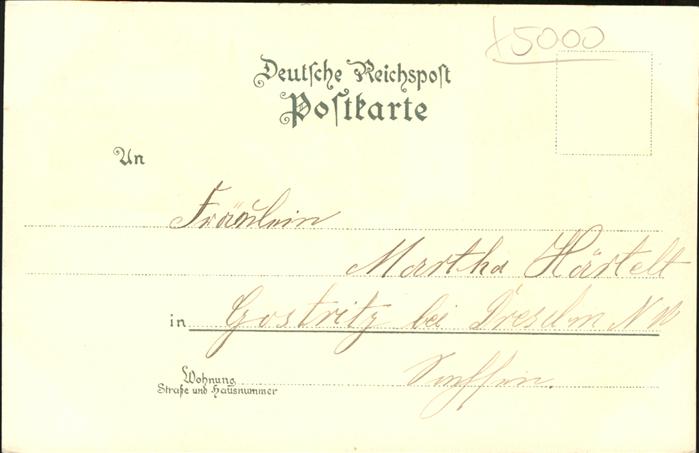 5000
Deutsche Reichspost
Postkarte
An
Fräulein
Martha Härtelt
in Gostritz bei Dresden
Wohnung
Straße und Hausnummer